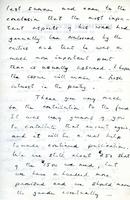 last summer and came to the
conclusion that the most impor-
tant aspects of his work had
generally been ignored by the
critics and that he was a
much more important poet
than is usually assumed. I hope
the essay will
in the poetry.
Thank you very much
for the contribution to the fund.
It was very generous of you
to contribute that amount again
and it will be a real help
towards continued publication.
We are still about $50 short
of the $350 we need, but
we have a hundred more
promised and we should make
the grade eventually.